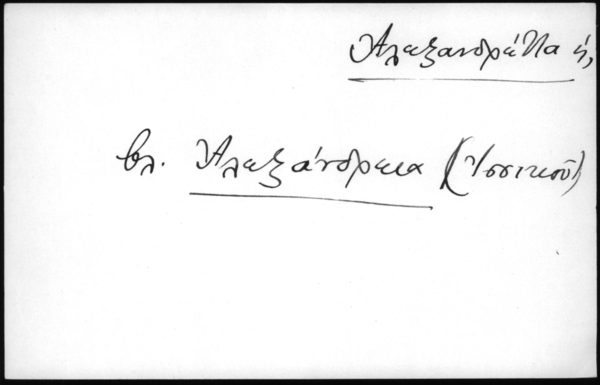 Ἀλεξανδρέττα ἡ,
βλ. Ἀλεξάνδρεια (Ἰσσικοῦ)